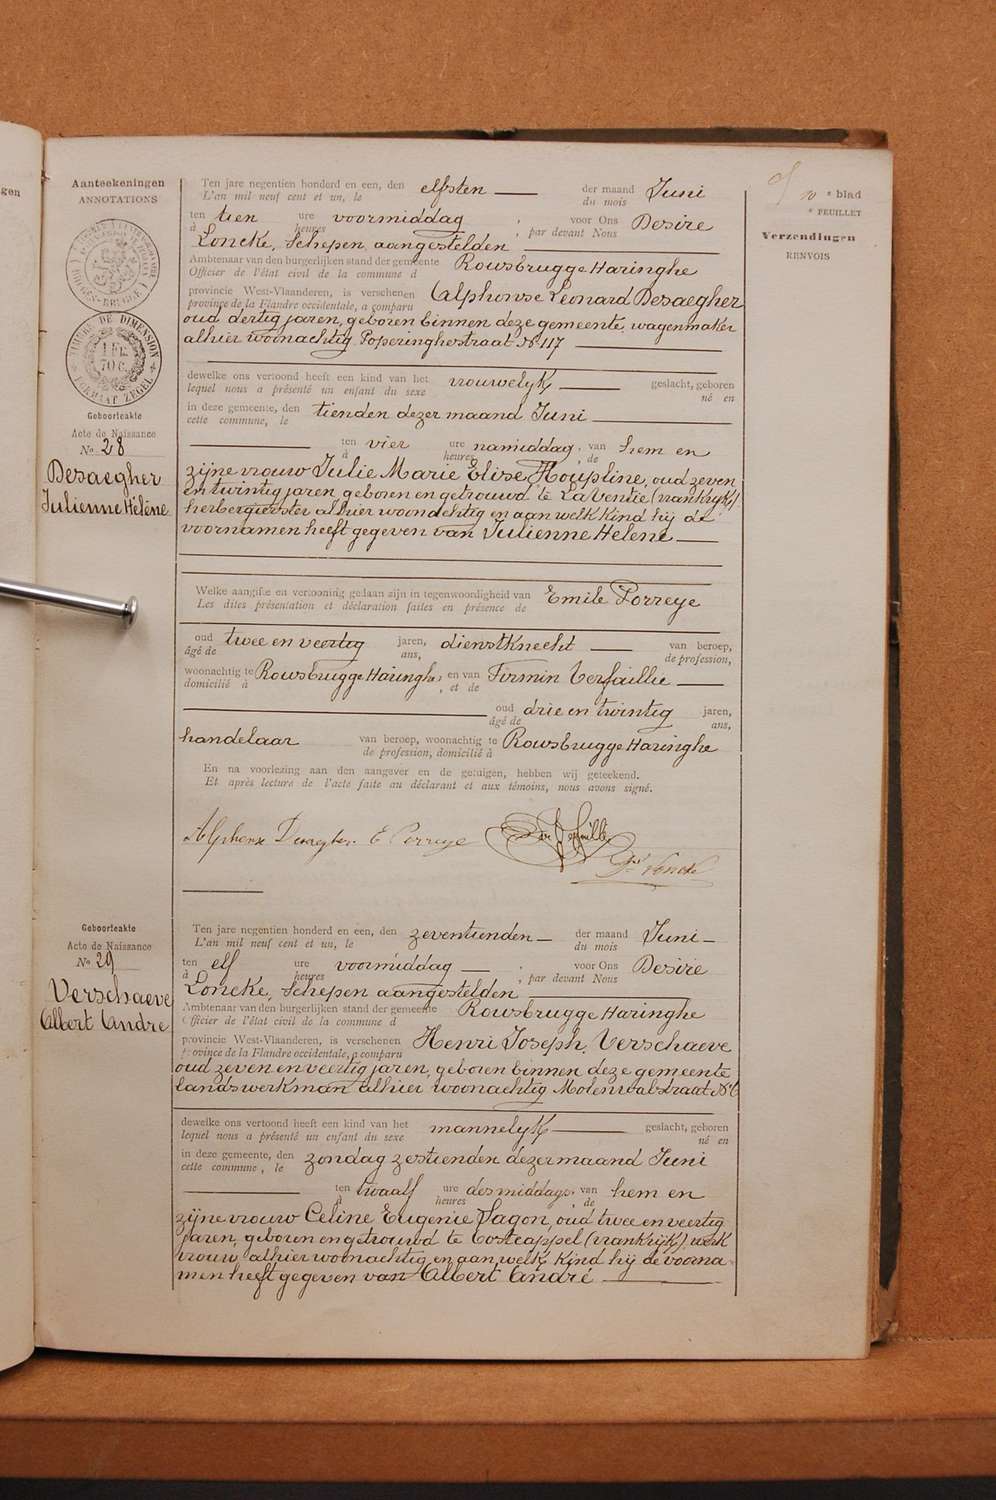 gen
Aanteekeningen
ANNOTATIONS
TIMBRE DE DIMENSION
1 FR.
70 C.
FORMAAT ZEGEL
blad
FEUILLET
Verzendingen
RENVOIS
Geboorteakte
Acte de Naissance
No 28
Desaegher
Julienne Hélène
Ten jare negentien honderd en een, den elfsten der maand Juni
L'an mil neuf cent et un, le du mois
ten tien ure voormiddag, voor Ons Desire
à heures, par devant Nous
Loncke, Schepen aangestelden
Ambtenaar van den burgerlijken stand der gemeente Rousbrugge Haringhe
Officier de l'état civil de la commune d
provincie West-Vlaanderen, is verschenen Alphonse Leonard Desaegher
province de la Flandre occidentale, a comparu
oud dertig jaren, geboren binnen deze gemeente, wagenmaker
alhier woonachtig Poperinghestraat No 117
dewelke ons vertoond heeft een kind van het vrouwelyk geslacht, geboren
lequel nous a présenté un enfant du sexe né en
in deze gemeente, den tienden dezer maand Juni
cette commune, le
ten vier ure namiddag, van hem en
à heures, de
zijne vrouw Julie Marie Elise Houpline, oud zeven
en twintig jaren, geboren en getrouwd te La Ventie (vrankrijk)
herbergierster alhier woonachtig en aan welk kind hij de
voornamen heeft gegeven van Julienne Helene
Welke aangifte en vertooning gedaan zijn in tegenwoordigheid van Emile Porreye
Les dites présentation et déclaration faites en présence de
oud twee en veertig jaren, dienstknecht van beroep,
âgé de ans, de profession,
woonachtig te Rousbrugge Haringhe en van Firmin Verfaillie
domicilié à, et de
oud drie en twintig jaren,
âgé de ans,
handelaar van beroep, woonachtig te Rousbrugge Haringhe
de profession, domicilié à
En na voorlezing aan den aangever en de getuigen, hebben wij geteekend.
Et après lecture de l'acte faite au déclarant et aux témoins, nous avons signé.
Alphonse Desaegher E Porreye
Loncke
Geboorteakte
Acte de Naissance
No 29
Verschaeve
Albert André
Ten jare negentien honderd en een, den zeventienden der maand Juni
L'an mil neuf cent et un, le du mois
ten elf ure voormiddag, voor Ons Desire
à heures, par devant Nous
Loncke, Schepen aangestelden
Ambtenaar van den burgerlijken stand der gemeente Rousbrugge Haringhe
Officier de l'état civil de la commune d
provincie West-Vlaanderen, is verschenen Henri Joseph Verschaeve
province de la Flandre occidentale, a comparu
oud zeven en veertig jaren, geboren binnen deze gemeente
landswerkman alhier woonachtig Molenwalstraat No
dewelke ons vertoond heeft een kind van het mannelyk geslacht, geboren
lequel nous a présenté un enfant du sexe né en
in deze gemeente, den zondag zestienden dezer maand Juni
cette commune, le
ten twaalf ure des middags, van hem en
à heures, de
zijne vrouw Celine Eugenie Sagon, oud twee en veertig
jaren, geboren en getrouwd te Oostcappel (vrankrijk), werk
vrouw, alhier woonachtig en aan welk kind hij de voorna-
men heeft gegeven van Albert André